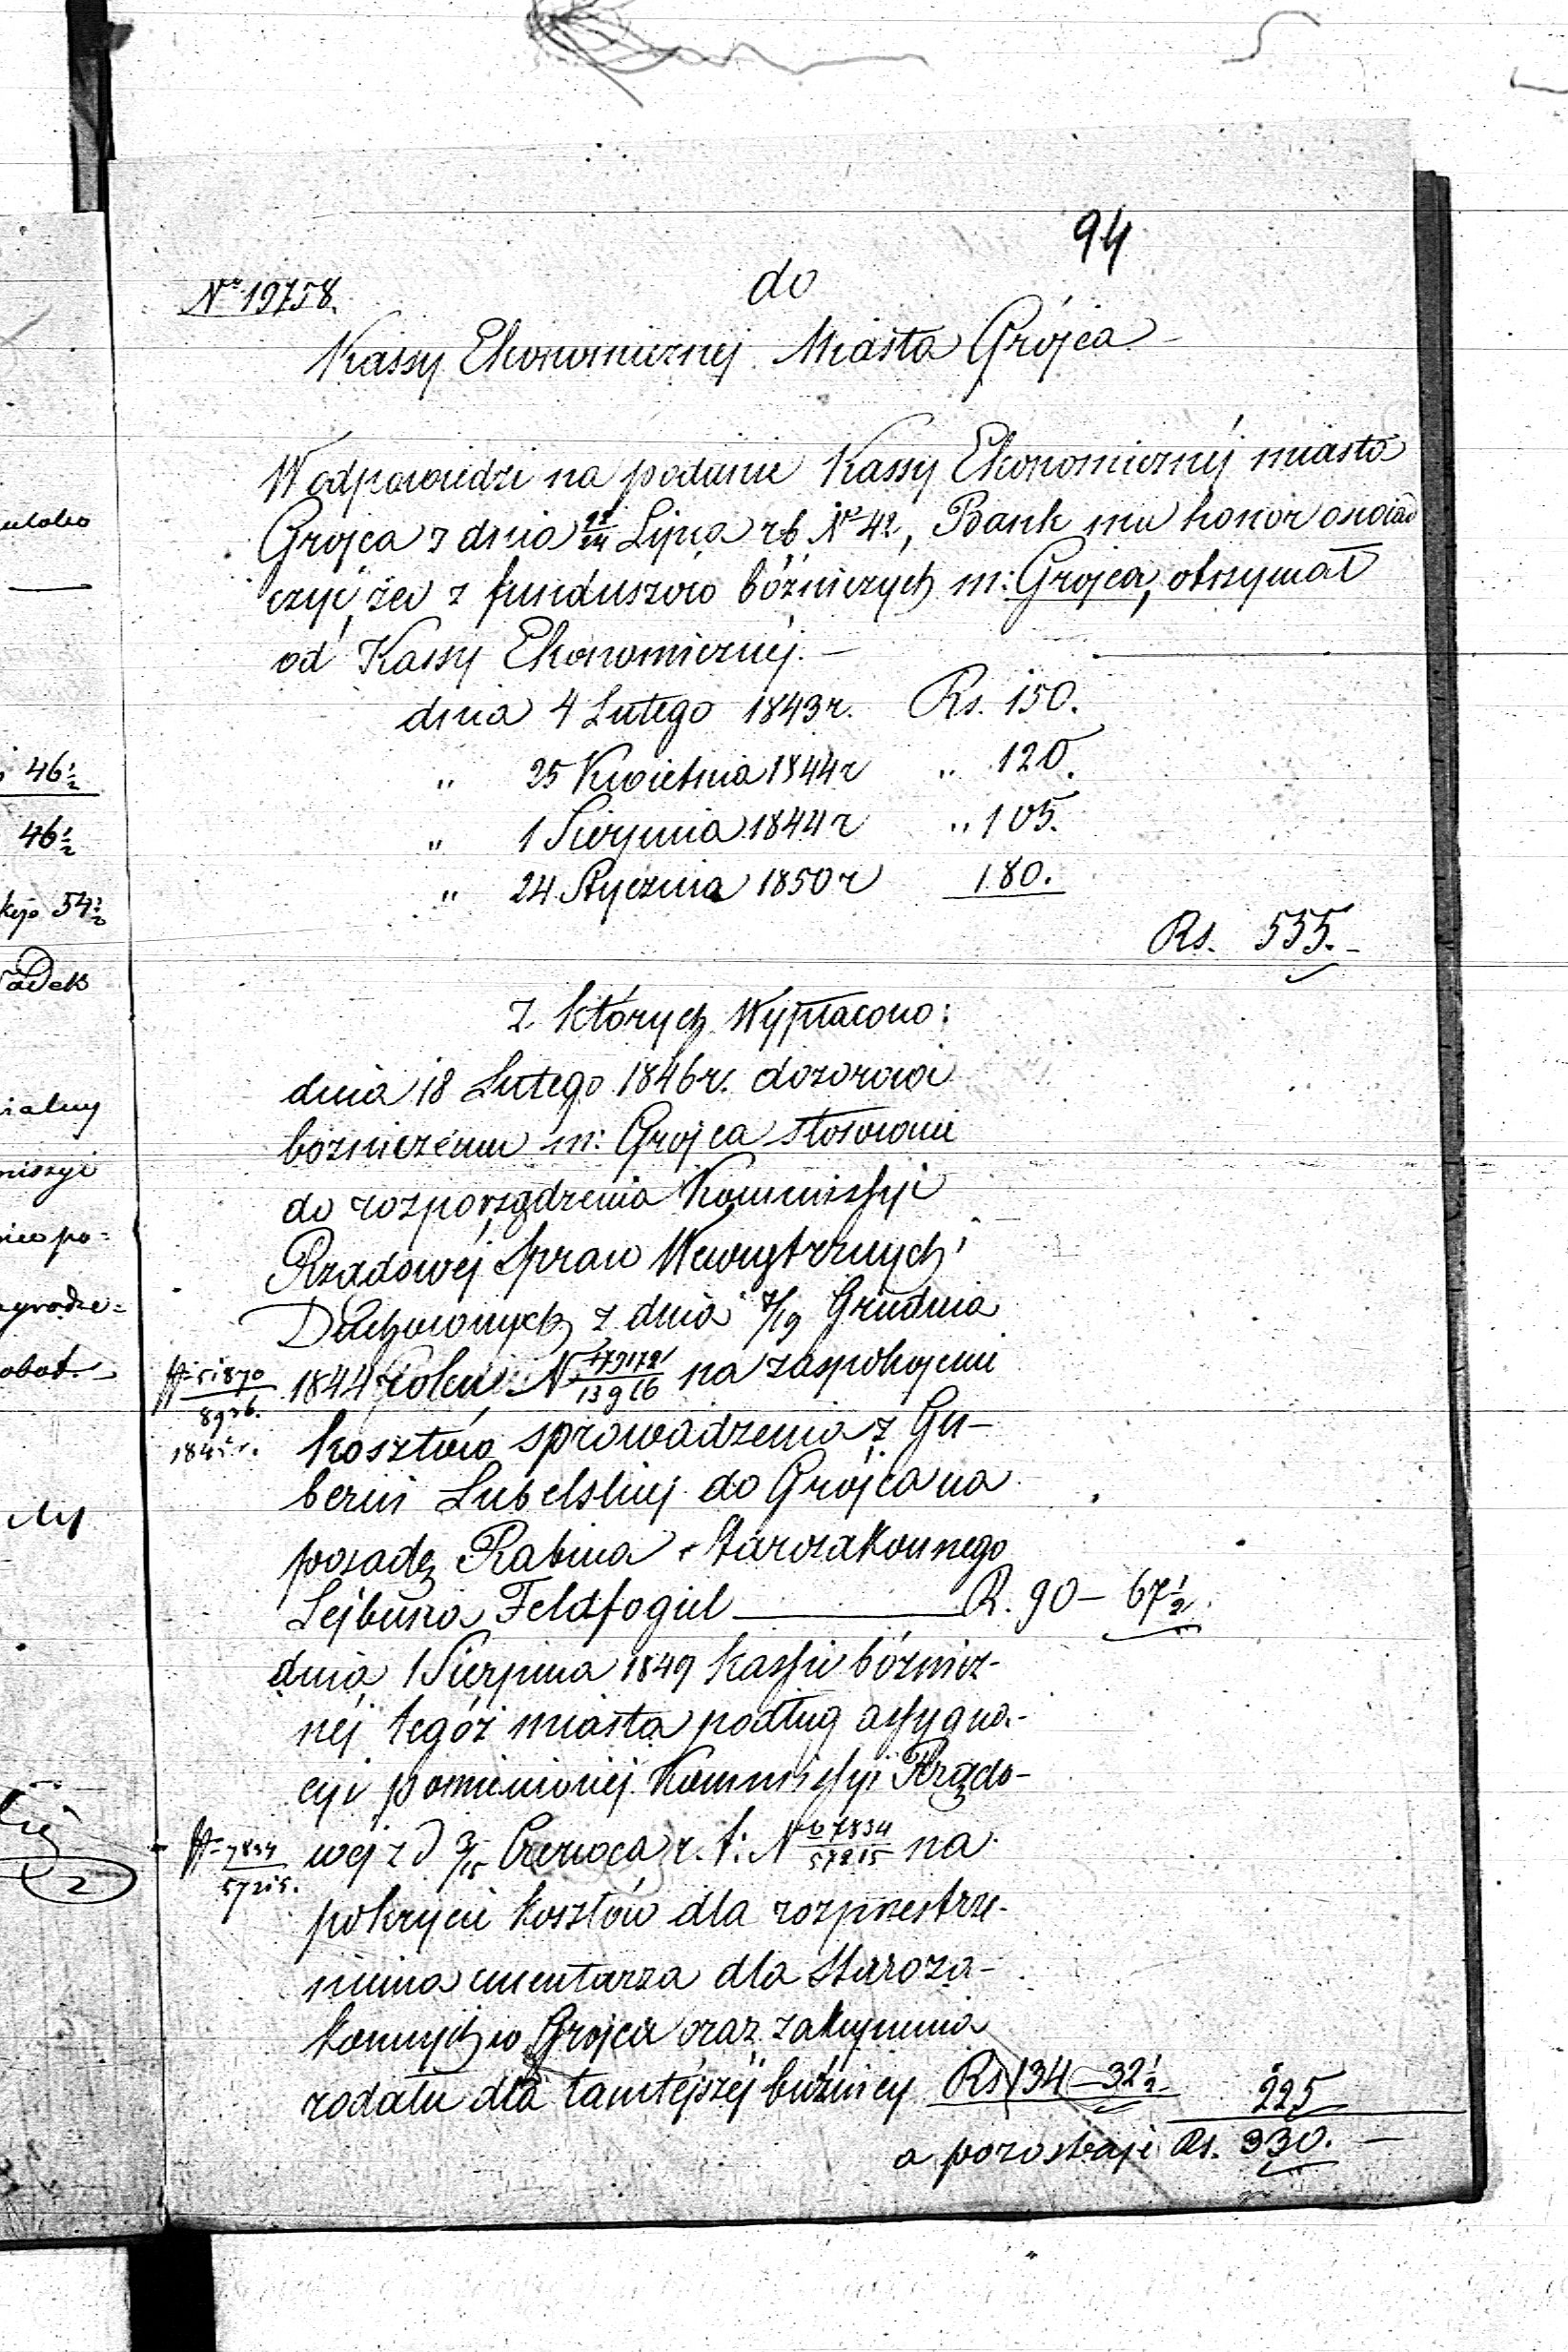 94
Nº 19758.
do
Kassy Ekonomicznej Miasta Grójca
W odpowiedzi na podanie Kassy Ekonomicznéj miasta
Grojca z dnia 12/24 Lipca rb Nº 42, Bank ma honor oświad
czyć, że z funduszów bóżniczych m: Grojca, otrzymał
od Kassy Ekonomicznéj. —
dnia 4 Lutego 1843 r. Rs. 150.
" 25 Kwietnia 1844 r " 120.
" 1 Sierpnia 1844 r " 105.
" 24 Stycznia 1850 r 180.
Rs. 555. -
Z których Wypłacono:
dnia 18 Lutego 1846 r. dozorowi
bóżniczému m: Grojca stosownie
do rozporządzenia Kommissyi
Rządowéj Spraw Wewnętrznych i
Duchownych z dnia 7/19 Grudnia
1844 roku, N 13916 na zaspokojenie
51870
8936.
kosztów sprowadzenia z Gu-
bernii Lubelskiej do Grójca na
posadę Rabina Starozakonnego
Lejbusia Feldfogiel — R. 90 – 67 1/2
dnia 1 Sierpnia 1849 kassie bóżnicz-
néj tegóż miasta podług assygna-
cyi pomienionéj Kommissyi Rządo-
wéj z d 3/15 Czerwca r. t: N 7834/57215 na
7834
57215.
pokrycie kosztów dla rozprzestrze-
nienia cmentarza dla Staroza-
konnych w Grojca oraz zakupienia
rodału dla tamtéjszéj bużnicy Rs 134 – 32 1/2 225
a pozostaje Rs. 330. —